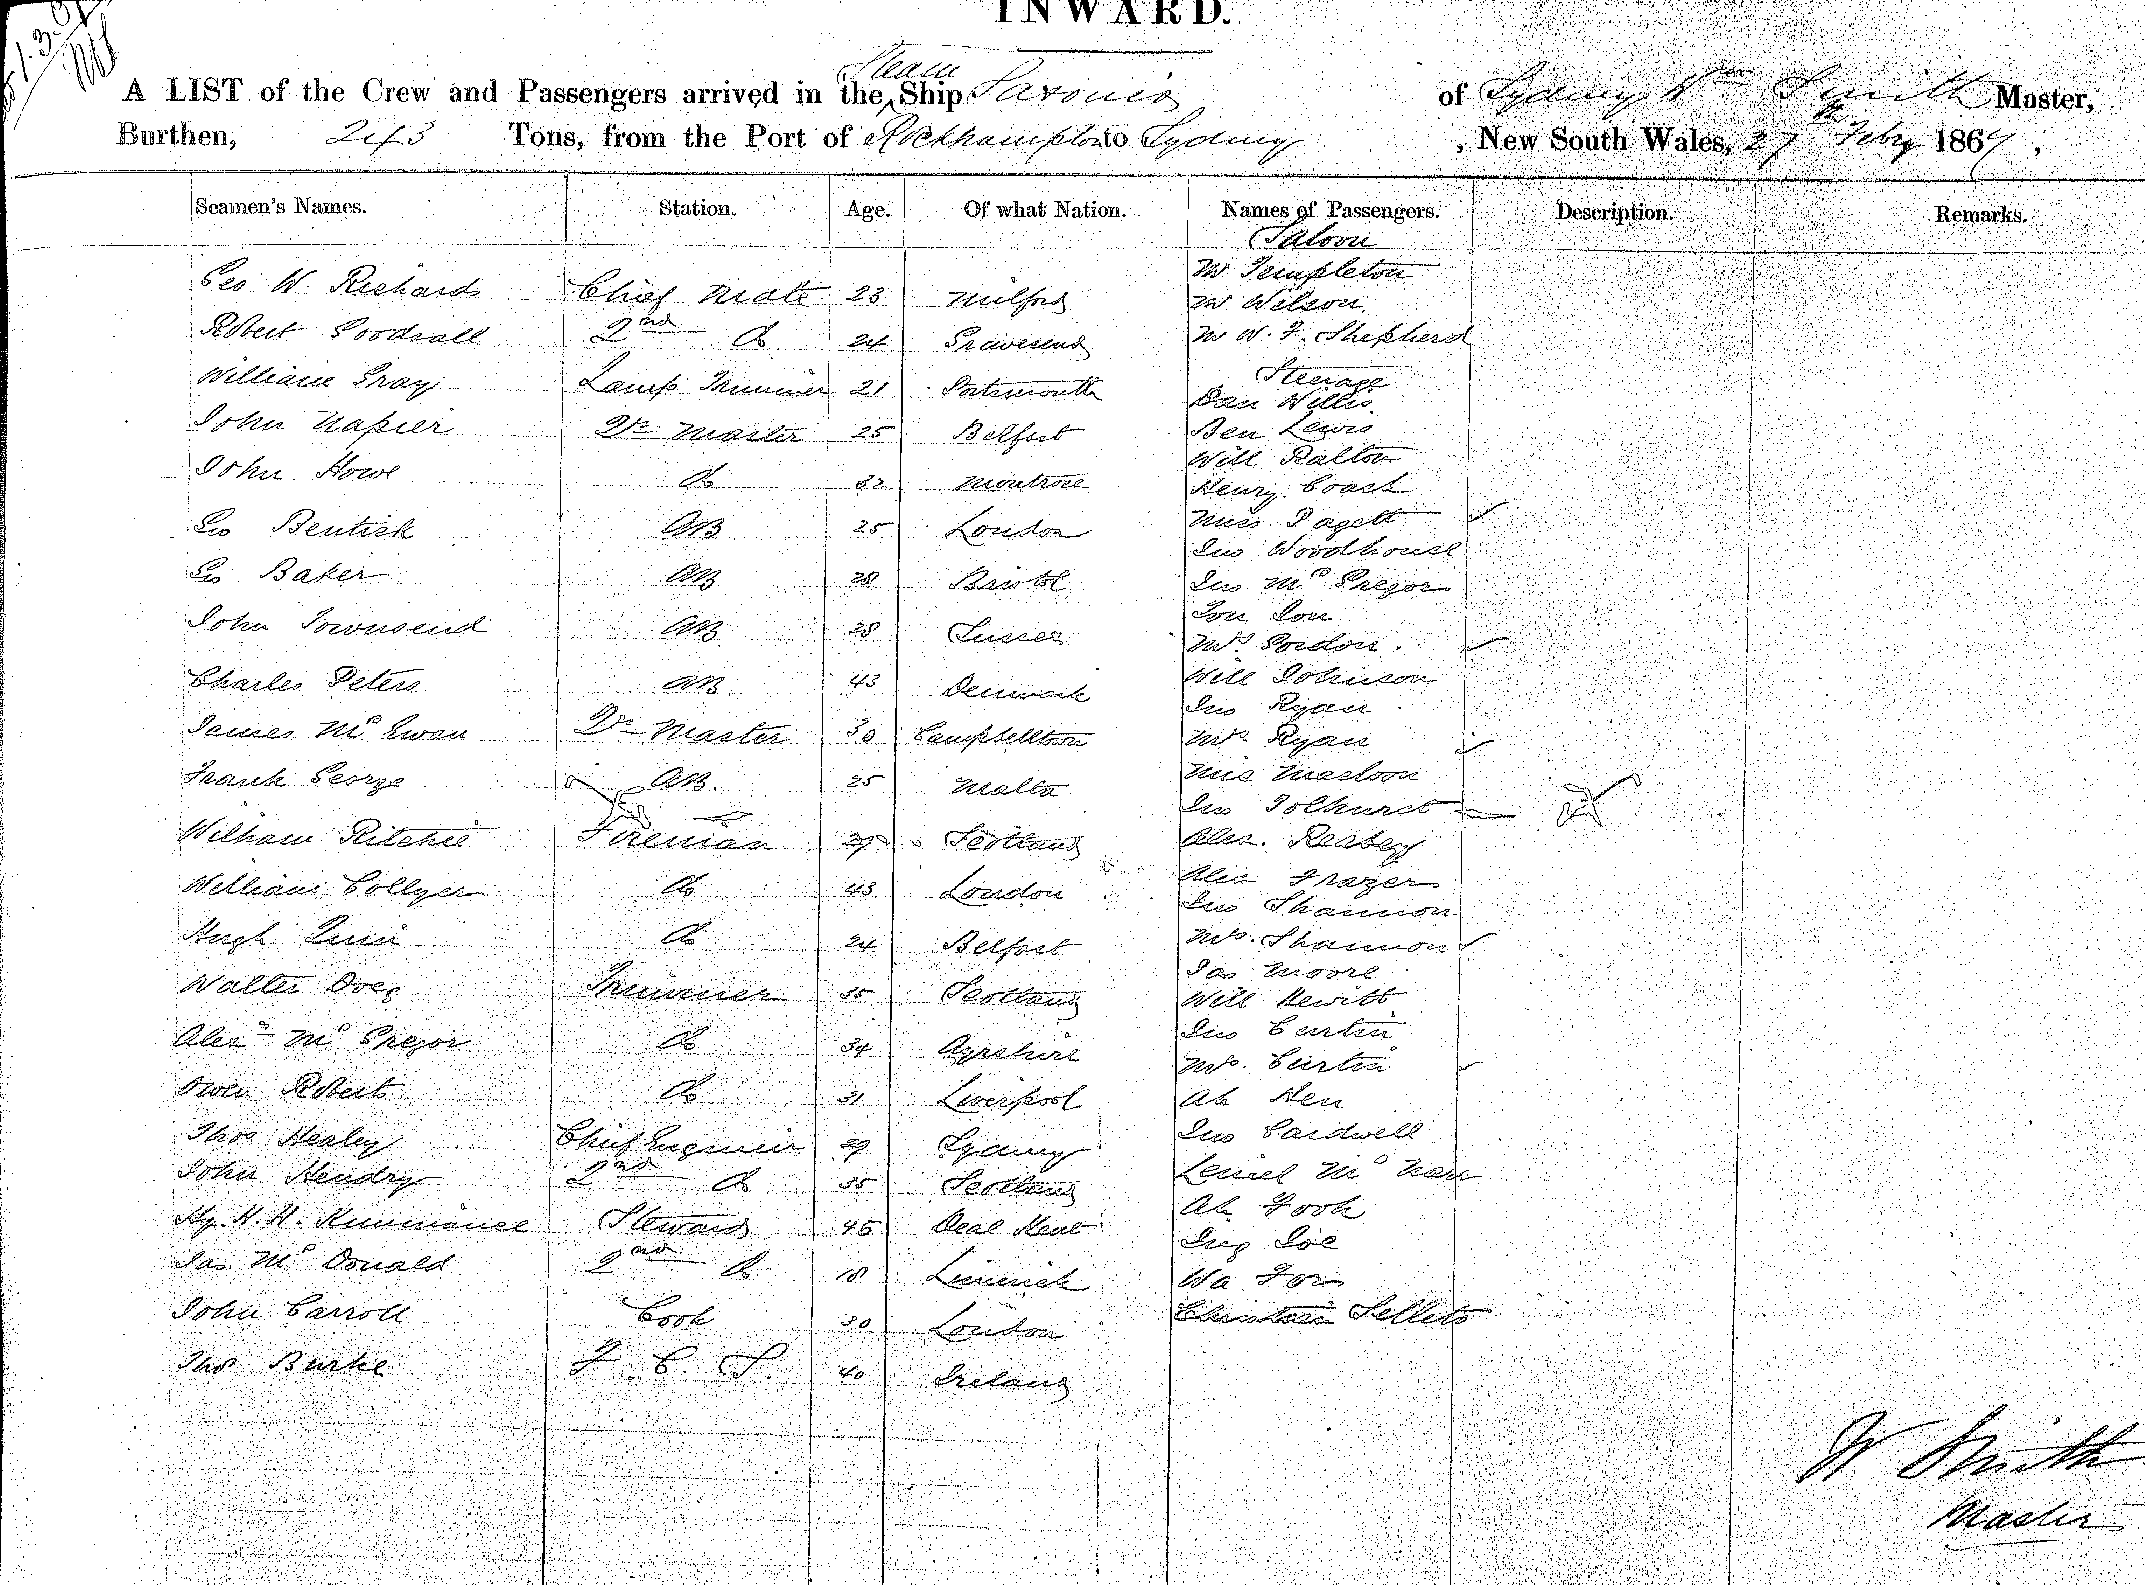 INWARD.
A LIST of the Crew and Passengers arrived in the Steam Ship Saxonia of Sydney Wm Smith Master,
Burthen, 243 Tons, from the Port of Rockhampton to Sydney, New South Wales, 27th Feby 1864,
Seamen's Names. Station. Age. Of what Nation. Names of Passengers. Description. Remarks.
Saloon
Mr Templeton
Geo W. Richards Chief Mate 23 Milford
Mr Wilson
Robert Goodsall 2nd Do 24 Gravesend Mr W. F. Shepherd
Steerage
William Gray Lamp Trimmer 21 Portsmouth
Dan Willis
John Napier Qr Master 25 Belfast Ben Lewis
Will Ralton
John Howe Do 32 Montrose Henry Coast
Geo Bentick AB 25 London Miss Pagett
Jno Woodhouse
Geo Baker AB 28 Bristol Jno Mc Gregor
Jon Jon
John Townsend AB 28 Sussex Mrs Gordon
Charles Peters AB 43 Denmark Will Johnson
Jno Ryan
James Mc Ewan Qr Master 30 Campbelltown Mrs Ryan
Frank George AB. 25 Malta Miss
Jno Tolhurst
William Ritchie Fireman 29 Scotland Alex. Reabey
William Collyer Do 43 London Alex Frazer
Jno Shannon
Hugh Quin Do 24 Belfast Mrs. Shannon
Jas Moore
Walter Doeg Trimmer 35 Scotland Will Hewitt
Alexr Mc Gregor Do 34 Ayrshire Jno Curtin
Mrs. Curtin
Owen Roberts Do 31 Liverpool Ah Hen
Thos Healey Chief Engineer 29 Sydney Jno Cardwell
John Hendry 2nd Do 35 Scotland Mc Nan
Hy. H. H. Steward 45 Deal Kent Ah Fook
Joe
Jas Mc Donald 2nd Do 18 Limerick Wa For
John Carroll Cook 30 London Christain Sellets
Thos Burke F C S. 40 Ireland
W Smith
Master